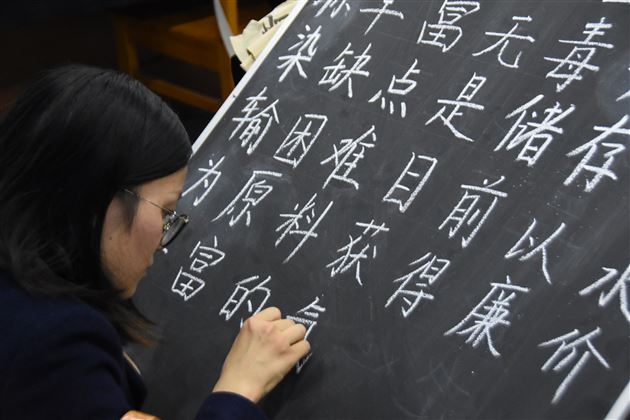 丰富无毒
染缺点是储存
输困难目前以水
为原料获得廉价
富的